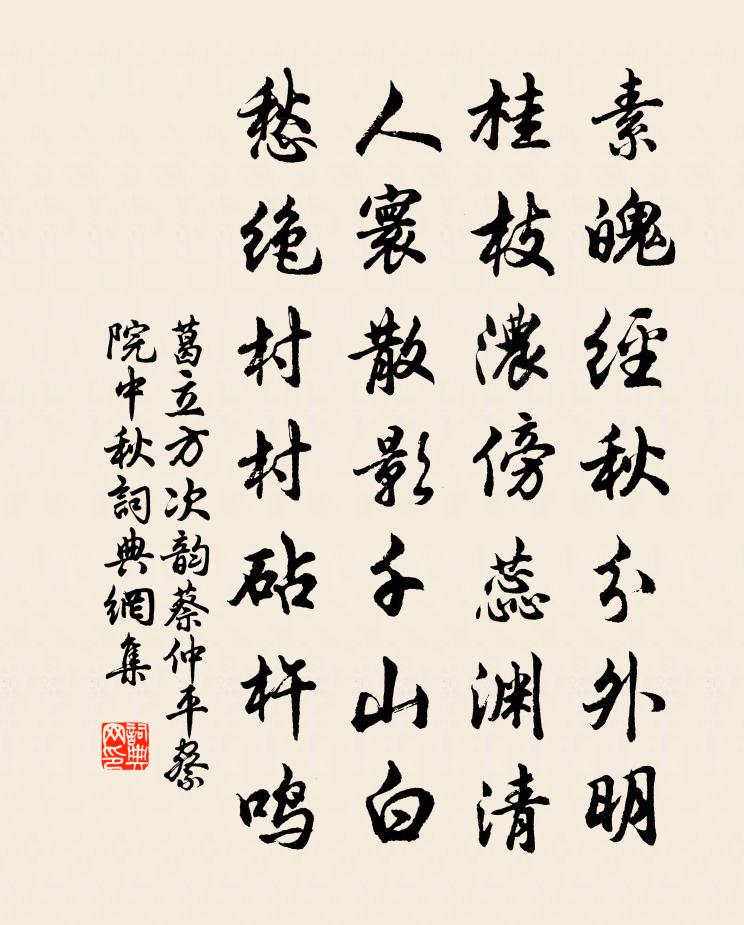 素魄經秋分外明
桂枝濃傍蕊渊清
人寰散影千山白
愁绝村村砧杵鸣
葛立方次韵蔡仲平祭
院中秋詞典網集
詞典
网印